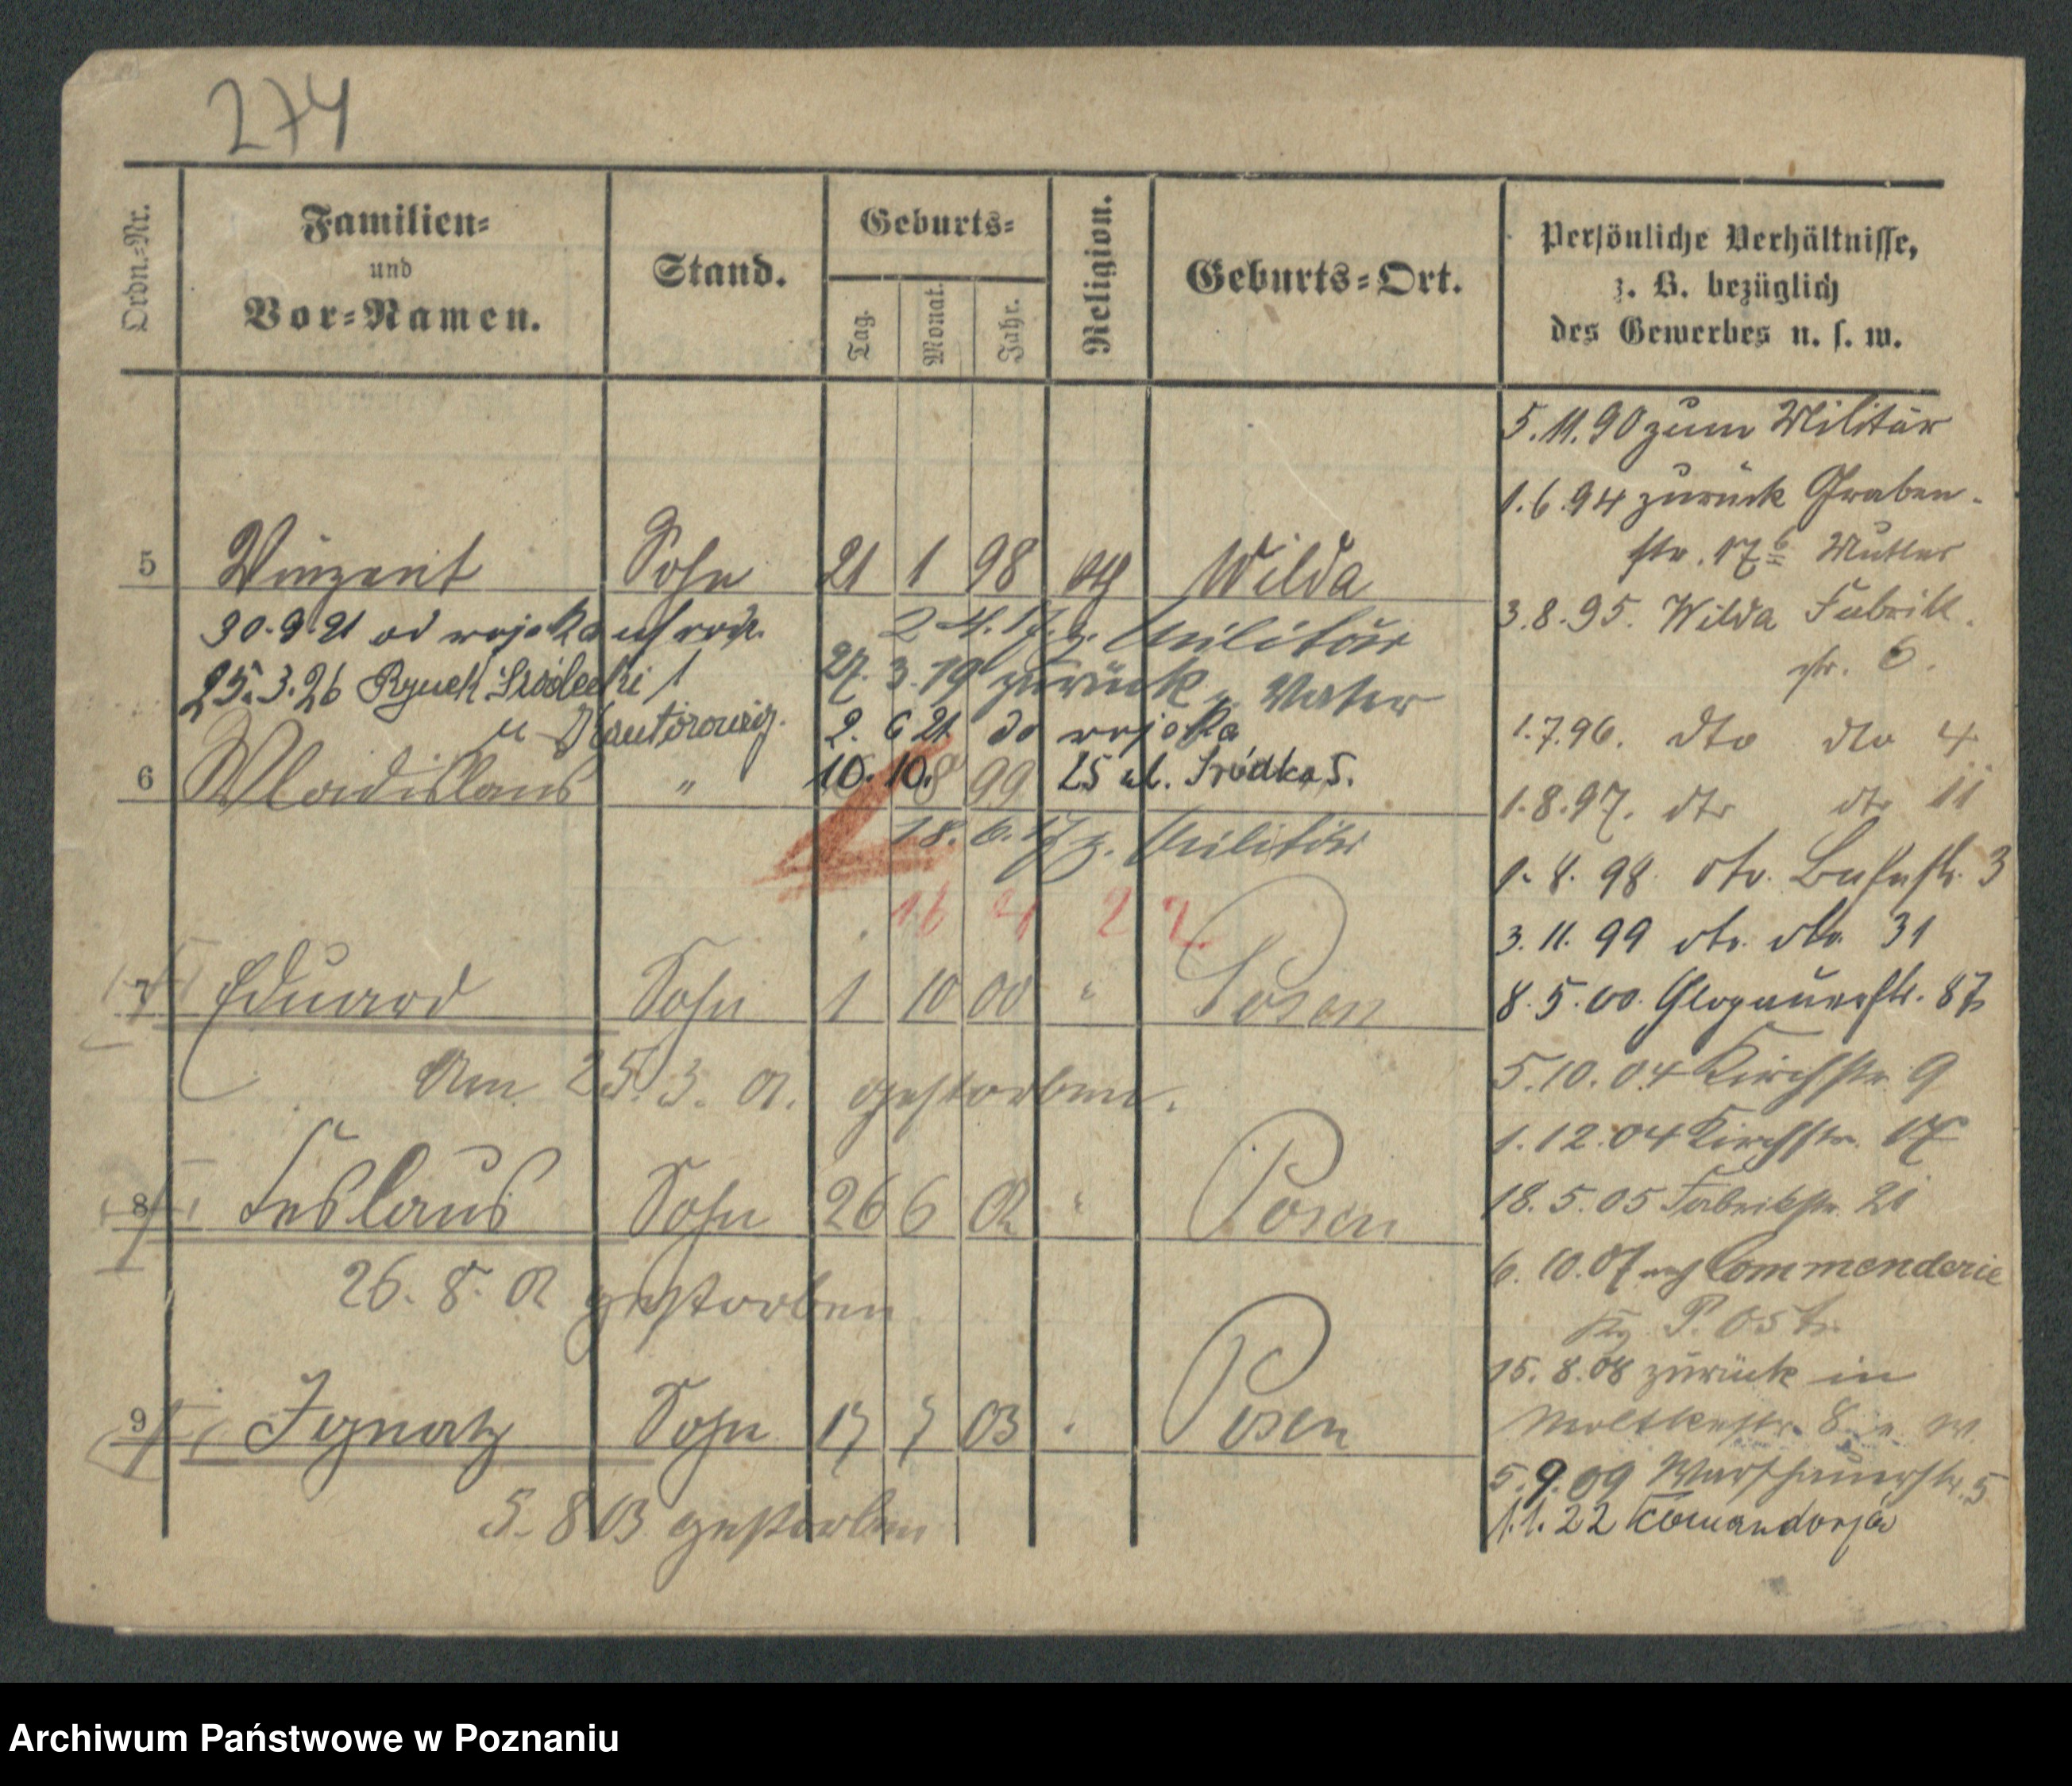 274
Ordn.-Nr.
Familien-
und
Vor-Namen.
Stand.
Geburts-
Tag.
Monat.
Jahr.
Religion.
Geburts-Ort.
Persönliche Verhältnisse,
z. B. bezüglich
des Gewerbes u. s. w.
5 Vinzent Sohn 21 1 98 Wilda
30.9.21 od wojska
2.4.17. z. Militär
25.3.26 Rynek Śródecki 1
27.3.19 zurück Vater
u
2. 6 21. do wojska
6 Wladislaus " 10. 10. 8 99 25 ul. Śródka 5.
18.6.17 z. Militär
16 4 22
7 Eduard Sohn 1 10 00 " Posen
Am 25.3.01. gestorben.
8 Ceslaus Sohn 26 6 02 " Posen
26.8.02 gestorben
9 Ignatz Sohn 17 7 03 " Posen
5.8.03 gestorben
5.11.90 zum Militär
1.6.94 zurück Graben-
str. 17 b Mutter
3.8.95. Wilda Fabrik-
str. 6.
1.7.96. dto dto 4
1.8.97. dto dto 11
1.8.98. dto. Bahnstr. 3
3.11.99 dto. dto. 31
8.5.00. Glogauerstr. 87
5.10.04 Kirchstr. 9
1.12.04 Kirchstr. 17
18.5.05 Fabrikstr. 21
6.10.07 nach Commenderie
Kr. P. Ost
15.8.08 zurück in
Moltkestr. 8
5.9.09 Warschauerstr. 5
1.1.22 Komandorja